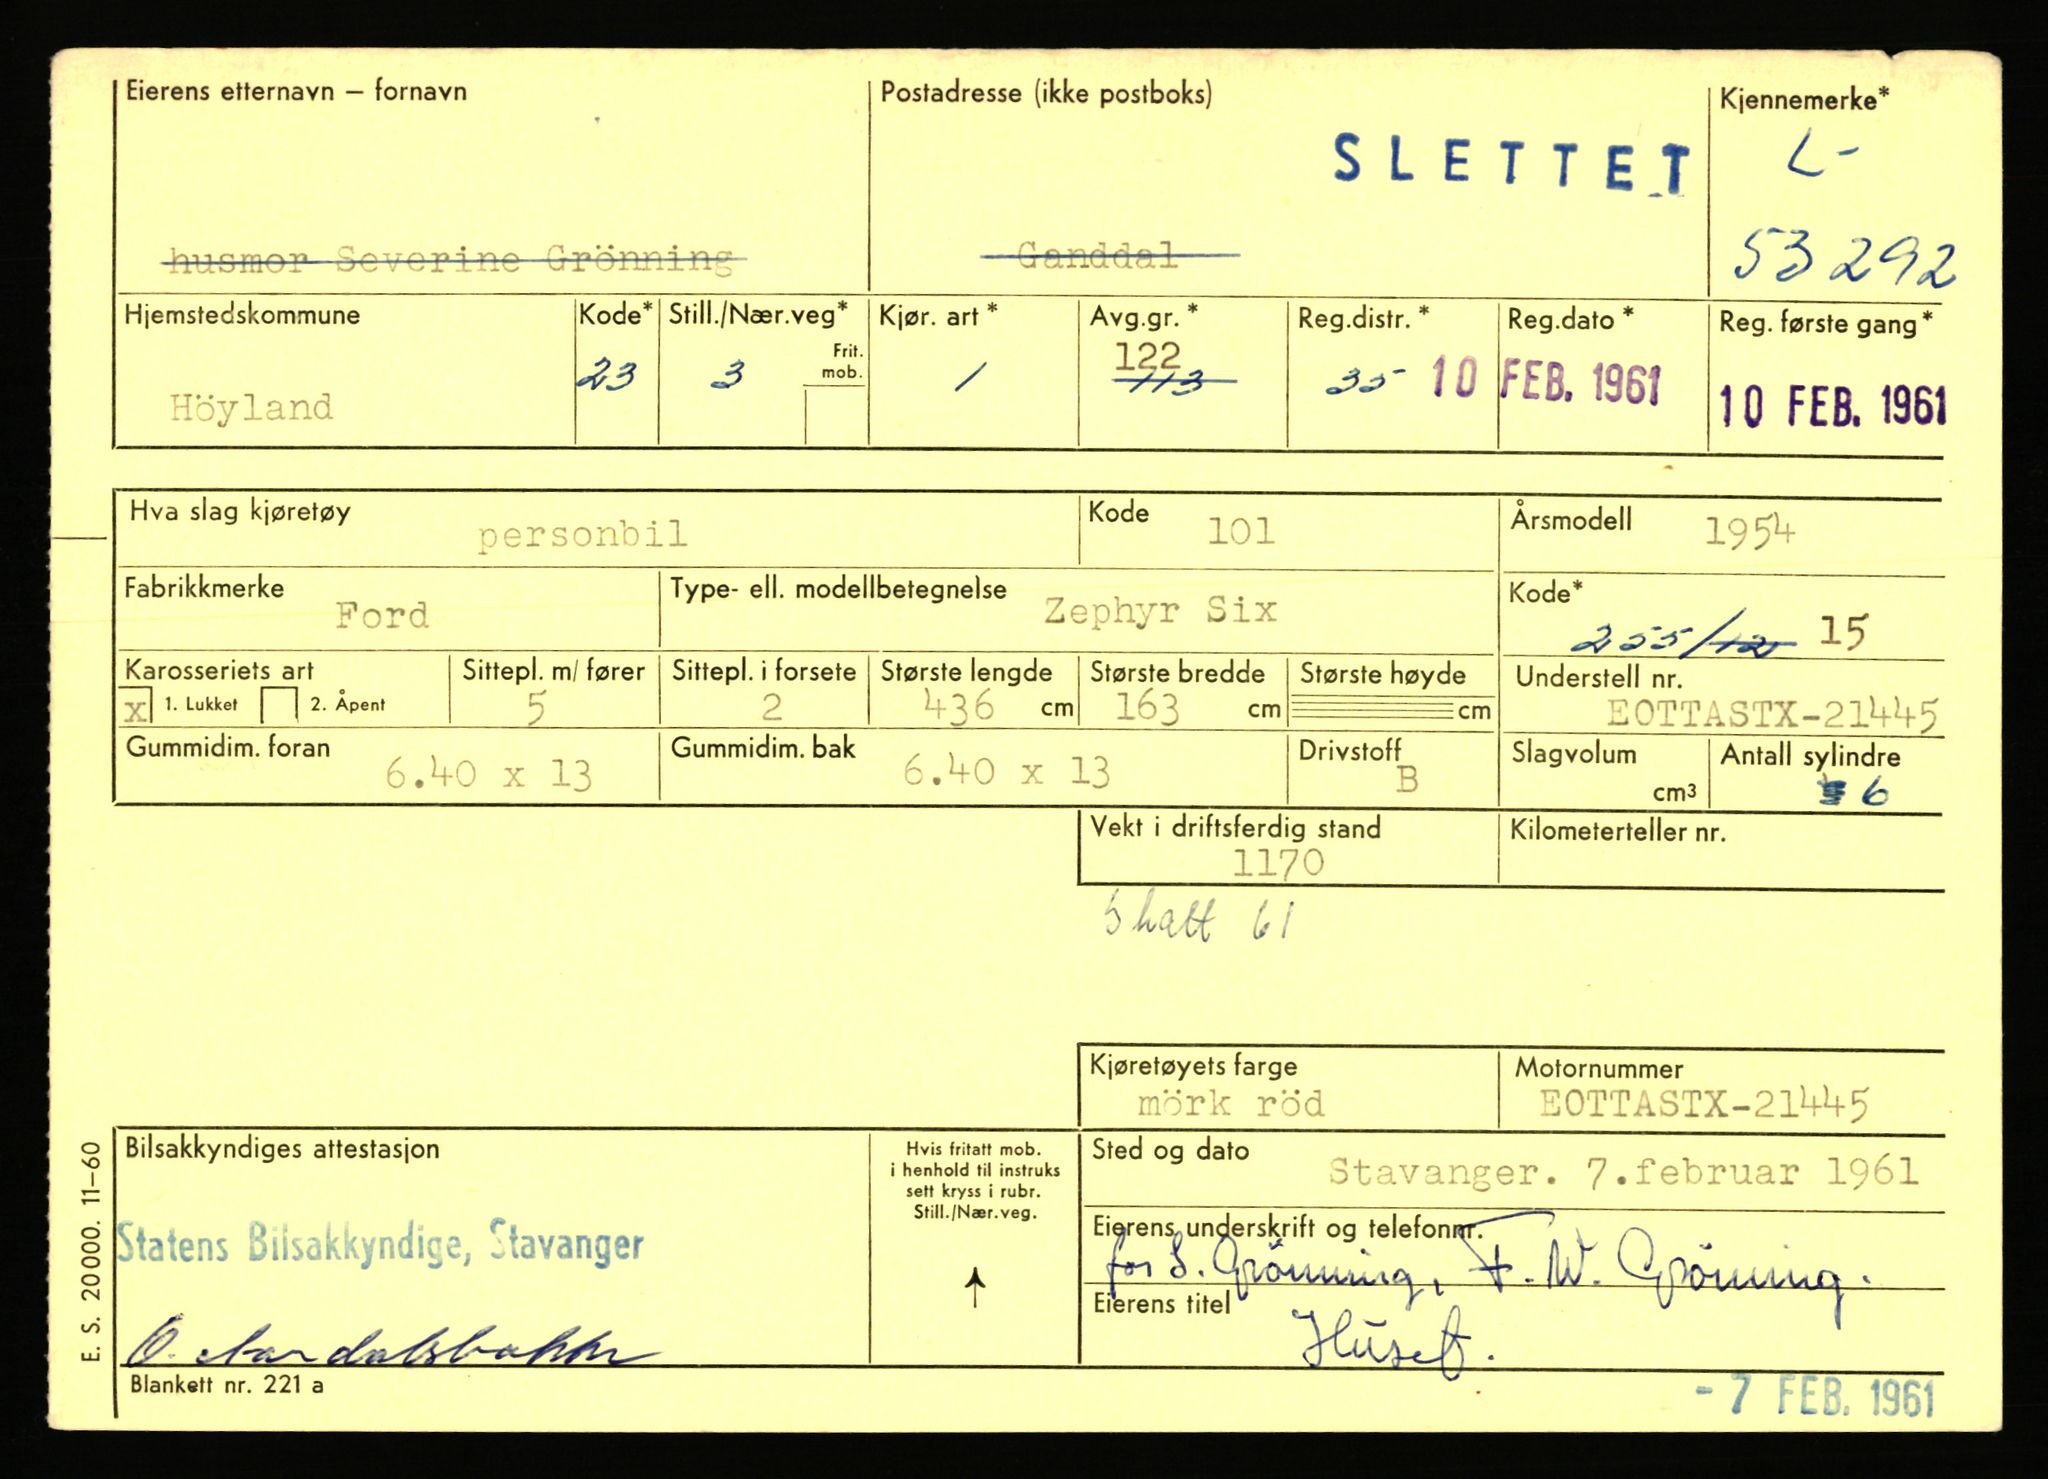 Eierens etternavn – fornavn
Postadresse (ikke postboks)
Kjennemerke*
SLETTET
L-
53292
husmor Severine Grönning
Ganddal
Hjemstedskommune
Kode*
Still./Nær.veg*
Kjør. art *
Avg.gr. *
Reg.distr. *
Reg.dato *
Reg. første gang*
Höyland
23
3
Frit. mob.
1
122
113
35
10 FEB. 1961
10 FEB. 1961
Hva slag kjøretøy
personbil
Kode
101
Årsmodell
1954
Fabrikkmerke
Ford
Type- ell. modellbetegnelse
Zephyr Six
Kode*
255/12 15
Karosseriets art
x 1. Lukket 2. Åpent
Sittepl. m/ fører
5
Sittepl. i forsete
2
Største lengde
436 cm
Største bredde
163 cm
Største høyde
cm
Understell nr.
EOTTASTX-21445
Gummidim. foran
6.40 x 13
Gummidim. bak
6.40 x 13
Drivstoff
B
Slagvolum
cm³
Antall sylindre
6
Vekt i driftsferdig stand
1170
Kilometerteller nr.
Skatt 61
Kjøretøyets farge
mörk röd
Motornummer
EOTTASTX-21445
Bilsakkyndiges attestasjon
Hvis fritatt mob.
i henhold til instruks
sett kryss i rubr.
Still./Nær.veg.
Sted og dato
Stavanger. 7.februar 1961
Statens Bilsakkyndige, Stavanger
Eierens underskrift og telefonnr.
for S. Grönning, F. W. Grönning.
Eierens titel
E. S. 20000. 11–60
Blankett nr. 221 a
- 7 FEB. 1961